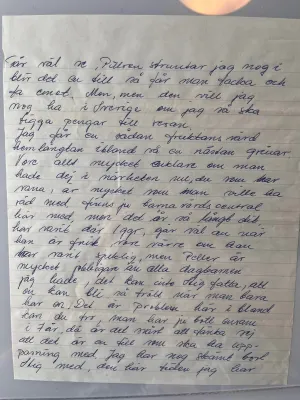 Får väl se. Pälsen struntar jag nog i
blir det en till så får man tacka och
ta emot. Men, men den vill jag
nog ha i Sverige om jag så ska
tigga pengar till resan.
Jag får en sådan fruktans värd
hemlängtan ibland så en nästan grinar
Vore allt mycket enklare om man
hade dej i närheten nu, du som har
vana, är mycket som man ville ha
råd med finns ju barnavårds central
här med, men det är så långt dit
har varit där 1 ggr, går väl an när
han är frisk
har varit men är
mycket än alla dagbarnen
jag hade, det kan inte jag fatta, att
en kan bli så trött när man bara
har en. Det är problem här i bland
kan du tro, man har ju bott ensam
i 7 år, då är det svårt att tänka sej
att det är en till som ska ha upp-
passning med. Jag har nog skämt bort
dej med, den här tiden jag har